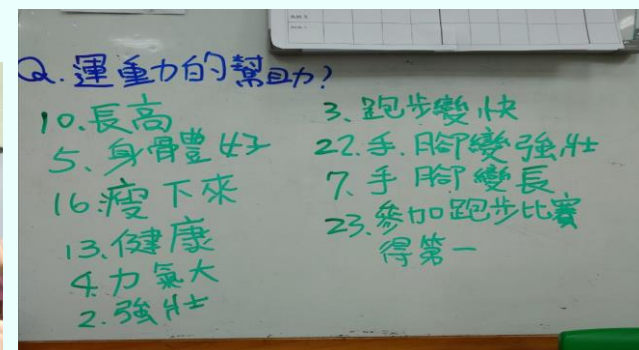 Q.運動的幫助?
10.長高
5、身體好
16.瘦下來
13.健康
4.力氣大
2.強壯
3.跑步變快
22.手.腳變強壯
7.手腳變長
23.參加跑步比賽
得第一